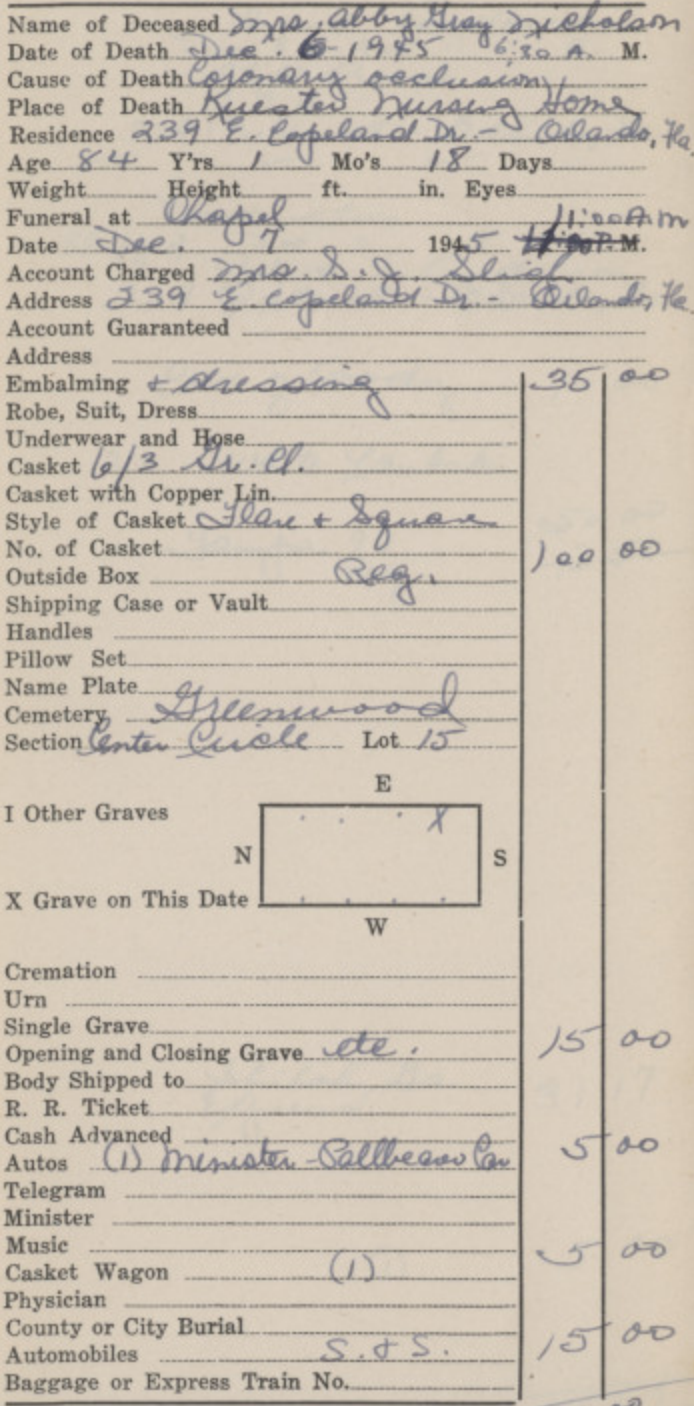 Name of Deceased Mrs. Abby Gray Nicholson
Date of Death Dec. 6 1945 6:30 A. M.
Cause of Death Coronary occlusion
Place of Death Kuester Nursing Home
Residence 239 E. Copeland Dr. - Orlando, Fla.
Age 84 Y'rs 1 Mo's 18 Days
Weight Height ft. in. Eyes
Funeral at Chapel 11:00 A.M
Date Dec. 7 1945 M.
Account Charged Mrs. S. J. Sligh
Address 239 E. Copeland Dr. - Orlando, Fla.
Account Guaranteed
Address
Embalming + dressing 35 00
Robe, Suit, Dress
Underwear and Hose
Casket 6/3 Gr. Cl.
Casket with Copper Lin.
Style of Casket Flare + Square
No. of Casket 100 00
Outside Box Reg.
Shipping Case or Vault
Handles
Pillow Set
Name Plate
Cemetery Greenwood
Section Center Circle Lot 15
E
I Other Graves X
N S
X Grave on This Date
W
Cremation
Urn
Single Grave
Opening and Closing Grave etc. 15 00
Body Shipped to
R. R. Ticket
Cash Advanced
Autos (1) Minister - Pallbearer Car 5 00
Telegram
Minister
Music
Casket Wagon (1) 5 00
Physician
County or City Burial
Automobiles S. + S. 15 00
Baggage or Express Train No.